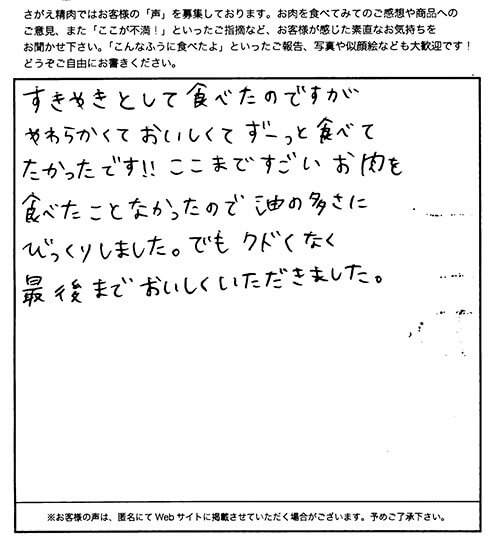 さがえ精肉ではお客様の「声」を募集しております。お肉を食べてみてのご感想や商品への
ご意見、また「ここが不満！」といったご指摘など、お客様が感じた素直なお気持ちを
お聞かせ下さい。「こんなふうに食べたよ」といったご報告、写真や似顔絵なども大歓迎です！
どうぞご自由にお書きください。
すきやきとして食べたのですが
やわらかくておいしくてずーっと食べて
たかったです!! ここまですごいお肉を
食べたことなかったので油の多さに
びっくりしました。でもクドくなく
最後までおいしくいただきました。
※お客様の声は、匿名にてWebサイトに掲載させていただく場合がございます。予めご了承下さい。